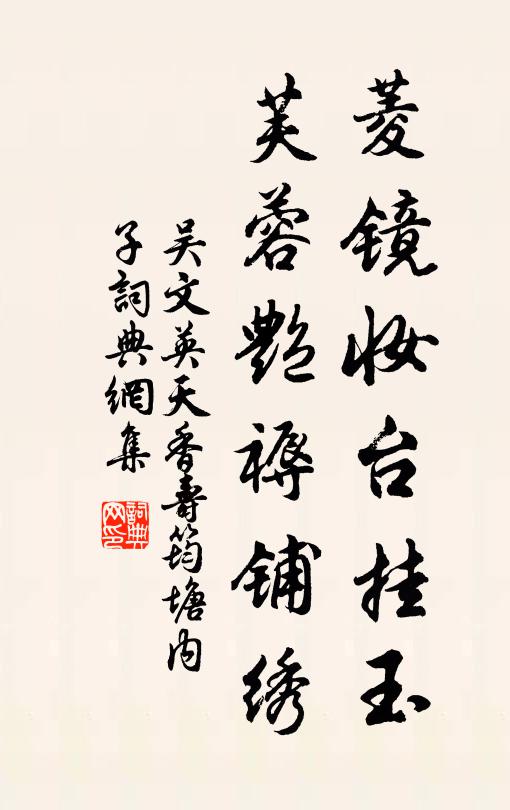 菱镜妆台挂玉
芙蓉艳褥铺绣
吴文英天香壽筠塘内
子詞典網集
詞典网印